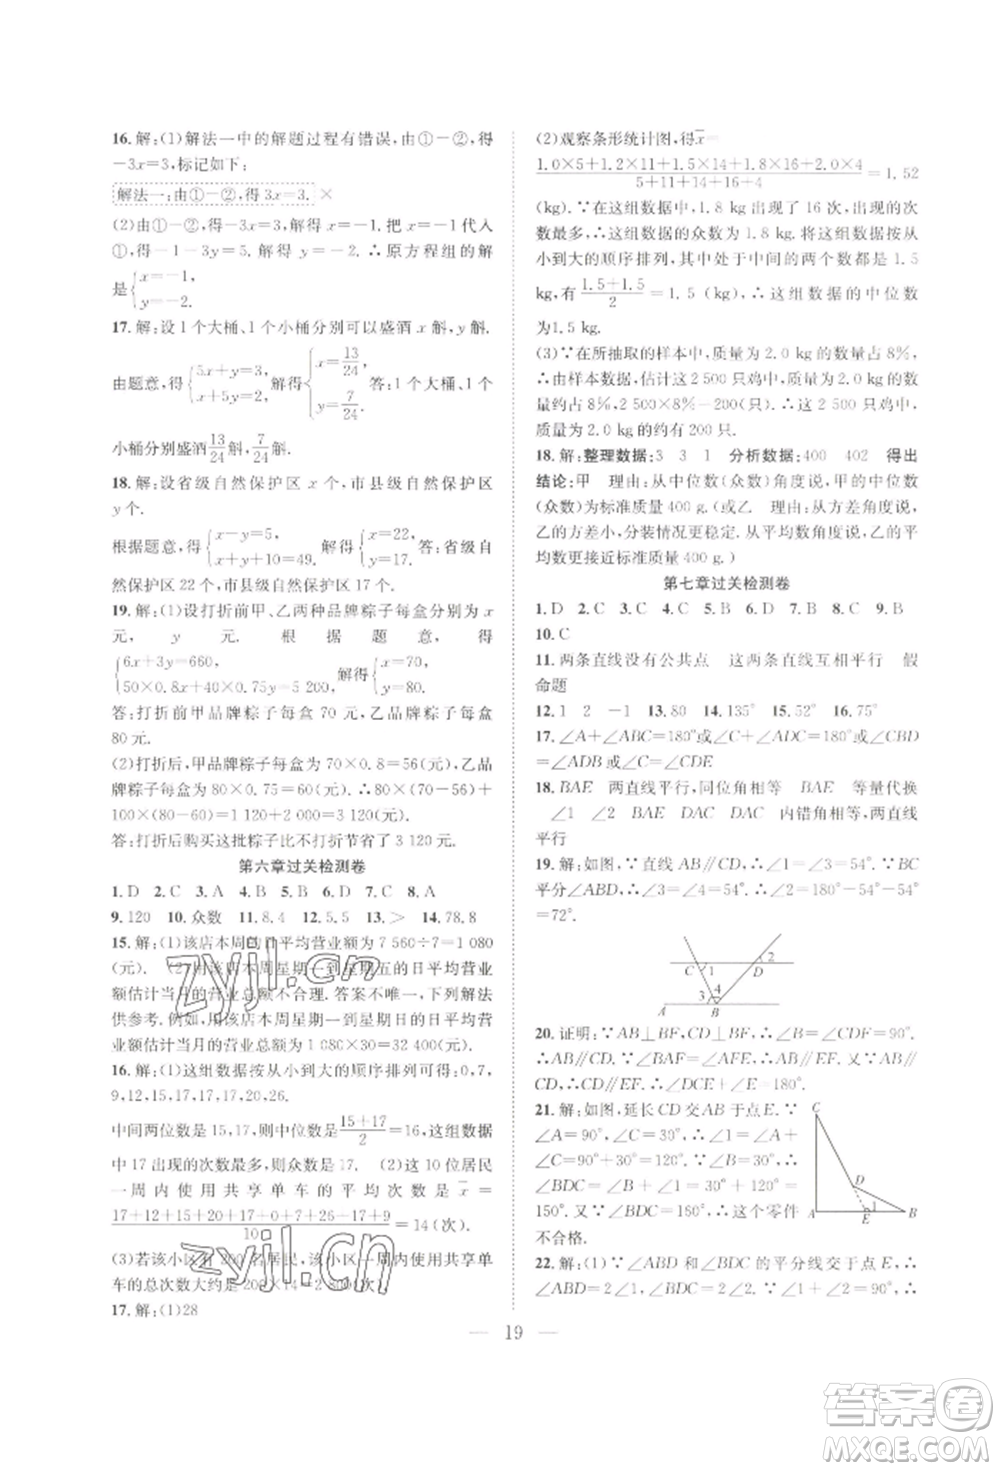 16.解:(1)解法一中的解题过程有错误,由①-②,得
-3x=3,标记如下:
解法一:由①-②,得 3x=3. ×
(2)由①-②,得-3x=3,解得 x=-1,把 x=-1代入
①,得-1-3y=5,解得 y=-2.∴原方程组的解
是{x=-1, y=-2.
17.解:设1个大桶、1个小桶分别可以盛酒 x 斛,y 斛.
由题意,得{5x+y=3, x+5y=2, 解得{x=13/24, y=7/24. 答:1个大桶、1个
小桶分别盛酒13/24斛,7/24斛.
18.解:设省级自然保护区 x 个,市县级自然保护区
y 个.
根据题意,得{x-y=5, x+y+10=49. 解得{x=22, y=17. 答:省级自
然保护区 22 个,市县级自然保护区 17 个.
19.解:(1)设打折前甲、乙两种品牌粽子每盒分别为 x
元, y 元. 根据题意, 得
{6x+3y=660, 50×0.8x+40×0.75y=5 200, 解得{x=70, y=80.
答:打折前甲品牌粽子每盒 70 元,乙品牌粽子每盒
80 元.
(2)打折后,甲品牌粽子每盒70×0.8=56(元),乙品
牌粽子每盒 80×0.75=60(元)∴100×(70-56)+
100×(80-60)=1 120+2 000=3 120(元)
答:打折后购买这批粽子比不打折节省了 3 120元.
第六章过关检测卷
1.D 2.C 3.A 4.B 5.B 6.B 7.C 8.A
9.120 10.众数 11.8.4 12.5.5 13.> 14.78.8
15.解:(1)该店本周的日平均营业额为7 560÷7=1 080
(元). (2)用该店本周星期一到星期五的日平均营业
额估计当月的营业总额不合理. 答案不唯一,下列解法
供参考. 例如,用该店本周星期一到星期日的日平均营
业额估计当月的营业总额为1 080×30=32 400(元)
16.解:(1)这组数据按从小到大的顺序排列可得:0,7,
9,12,15,17,17,17,20,26.
中间两位数是15,17,则中位数是(15+17)/2=16,这组数据
中 17 出现的次数最多,则众数是 17. (2)这 10 位居民
一周内使用共享单车的平均次数是 x̄ =
(17+12+15+20+17+0+7+26+17+9)/10=14(次).
(3)若该小区有 200 名居民,该小区一周内使用共享单
车的总次数大约是 200×14=2 800(次)
17.解:(1)28
(2)观察条形统计图,得x̄=
(1.0×5+1.2×11+1.5×14+1.8×16+2.0×4)/(5+11+14+16+4)=1.52
(kg).∵在这组数据中,1.8 kg出现了 16 次,出现的次
数最多,∴这组数据的众数为1.8 kg. 将这组数据按从
小到大的顺序排列,其中处于中间的两个数都是 1.5
kg,有(1.5+1.5)/2=1.5(kg),∴这组数据的中位数
为1.5 kg.
(3)∵在所抽取的样本中,质量为 2.0 kg的数量占8%,
∴由样本数据,估计这2 500 只鸡中,质量为2.0 kg的数
量约占8%, 2 500×8%=200(只).∴这2 500只鸡中,
质量为 2.0 kg的约有 200只.
18.解:整理数据:3 3 1 分析数据:400 402 得出
结论:甲 理由:从中位数(众数)角度说,甲的中位数
(众数)为标准质量400 g.(或乙 理由:从方差角度说,
乙的方差小,分装情况更稳定. 从平均数角度说,乙的平
均数更接近标准质量400 g.)
第七章过关检测卷
1.D 2.C 3.C 4.C 5.B 6.D 7.B 8.C 9.B
10.C
11.两条直线没有公共点 这两条直线互相平行 假
命题
12.1 2 -1 13.80 14.135° 15.52° 16.75°
17.∠A+∠ABC=180°或∠C+∠ADC=180°或∠CBD
=∠ADB或∠C=∠CDE
18.BAE 两直线平行,同位角相等 BAE 等量代换
∠1 ∠2 BAE DAC DAC 内错角相等,两直线
平行
19.解:如图.∵直线AB∥CD,∴∠1=∠3=54°.∵BC
平分∠ABD,∴∠3=∠4=54°,∴∠2=180°-54°-54°
=72°.
C 1 D 2
3 4
A B
20.证明:∵AB⊥BF,CD⊥BF,∴∠B=∠CDF=90°.
∴AB∥CD.∵∠1=∠2,∴AB∥EF. 又∵AB∥
CD,∴CD∥EF.∴∠DCE+∠E=180°.
21.解:如图,延长CD交AB于点E.∵
∠A=90°,∠C=30°,∴∠1=∠A+
∠C=90°+30°=120°.∵∠B=30°,
∴∠BDC=∠B+∠1=30°+120°=
150°. 又∵∠BDC≠∠1,∴这个零件
不合格.
C
D
A E 1 B
22.解:(1)∵∠ABD 和∠BDC的平分线交于点 E,∴
∠ABD=2∠1,∠BDC=2∠2.∵∠1+∠2=90°,∴
∠ABD+∠BDC=180°.∴AB∥CD.
— 19 —
zyjl.cn
zyjl.cn
答案圈
MXQE.COM